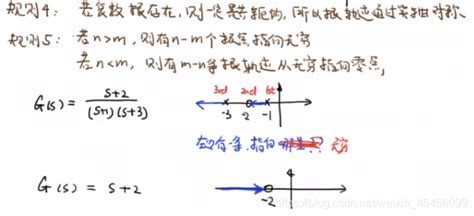 规则4: 若复数根存在,则一定是共轭的,所以根轨迹通过实轴对称.
规则5: 若n>m,则有n-m个极点指向无穷
若n<m,则有m-n条根轨迹从无穷指向零点,
G(s) = s+2 / (s+1)(s+3)
3rd 2nd 1st
-3 -2 -1
左边有一条,指向 无穷
G(s) = s+2
-2
https://blog.csdn.net/weixin_45456099